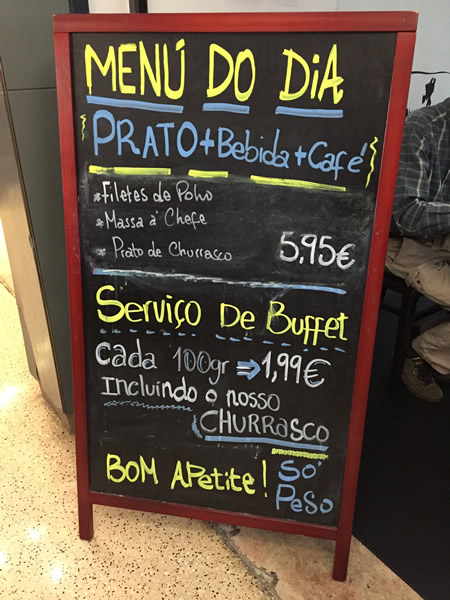 MENÚ DO DIA
PRATO+Bebida+Café
*Filetes de Polvo
*Massa à Chefe
* Prato de Churrasco 5,95€
Serviço De Buffet
Cada 100gr ⇒ 1,99€
Incluindo o nosso
CHURRASCO
BOM APetite! SÓ
PeSo